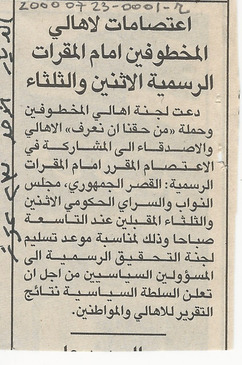 20000723-0001-2
اعتصامات لاهالي
المخطوفين امام المقرات
الرسمية الاثنين والثلثاء
دعت لجنة اهالي المخطوفين
وحملة «من حقنا ان نعرف» الاهالي
والاصدقاء الى المشاركة في
الاعتصام المقرر امام المقرات
الرسمية: القصر الجمهوري، مجلس
النواب والسراي الحكومي الاثنين
والثلثاء المقبلين عند التاسعة
صباحا وذلك لمناسبة موعد تسليم
لجنة التحقيق الرسمية الى
المسؤولين السياسيين من اجل ان
تعلن السلطة السياسية نتائج
التقرير للاهالي والمواطنين.